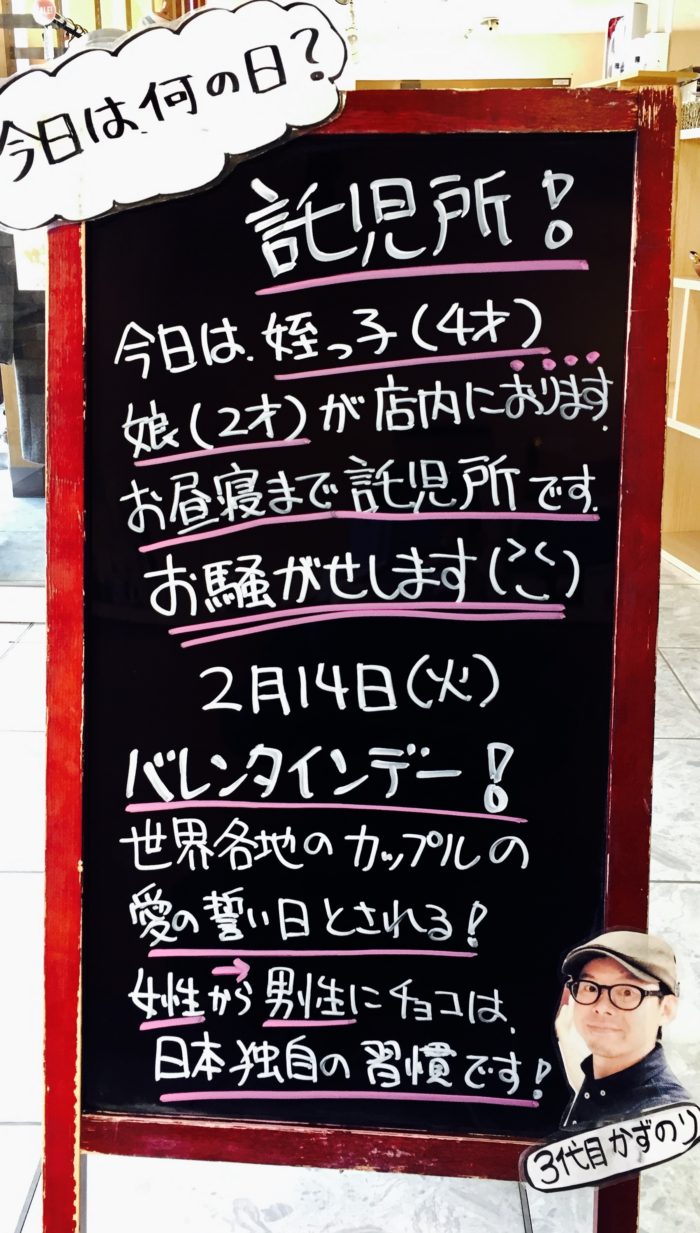 今日は何の日?
託児所!
今日は、姪っ子(4才)
娘(2才)が店内におります。
お昼寝まで託児所です。
お騒がせします(>こ<)
2月14日(火)
バレンタインデー!
世界各地のカップルの
愛の誓い日とされる!
女性から男性にチョコは、
日本独自の習慣です!
3代目かずのり